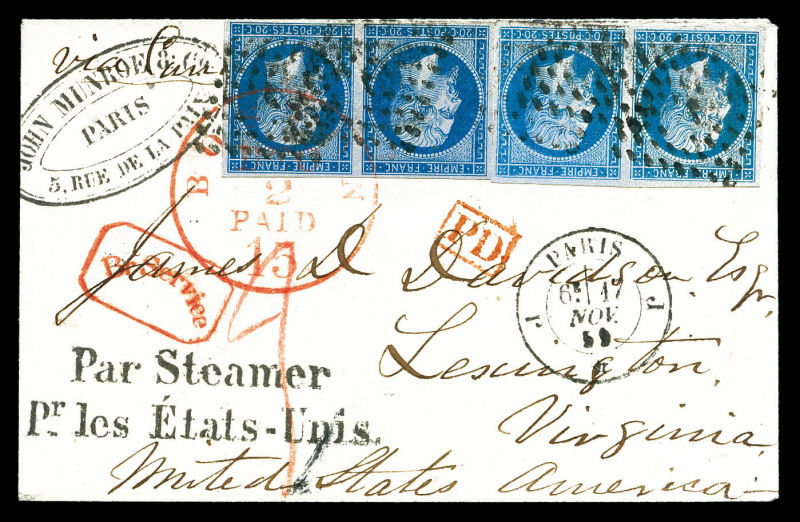 via
JOHN MUNROE & Co
PARIS
5, RUE DE LA PAIX
20 C POSTES 20 C
EMPIRE FRANC
20 C POSTES 20 C
EMPIRE FRANC
20 C POSTES 20 C
EMPIRE FRANC
20 C POSTES 20 C
EMPIRE FRANC
2
PAID
15
PD
Br Service
James D Davidson, Esqr
PARIS
6E 17
NOV.
59
J J
Lexington,
Par Steamer
Pr les États-Unis.
Virginia
United States America